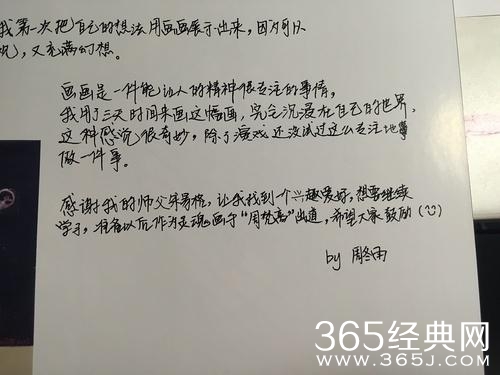 我第一次把自己的想法用画画展示出来，因为可以
况，又充满幻想。
画画是一件能让人的精神很专注的事情，
我用了三天时间来画这幅画，完全沉浸在自己的世界，
这种感觉很奇妙，除了演戏还没试过这么专注地
做一件事。
感谢我的师父朱易格，让我找到一个兴趣爱好，想要继续
学习，准备以后作为灵魂画手“周梵高”出道，希望大家鼓励
by 周冬雨
365经典网
WWW.365J.COM